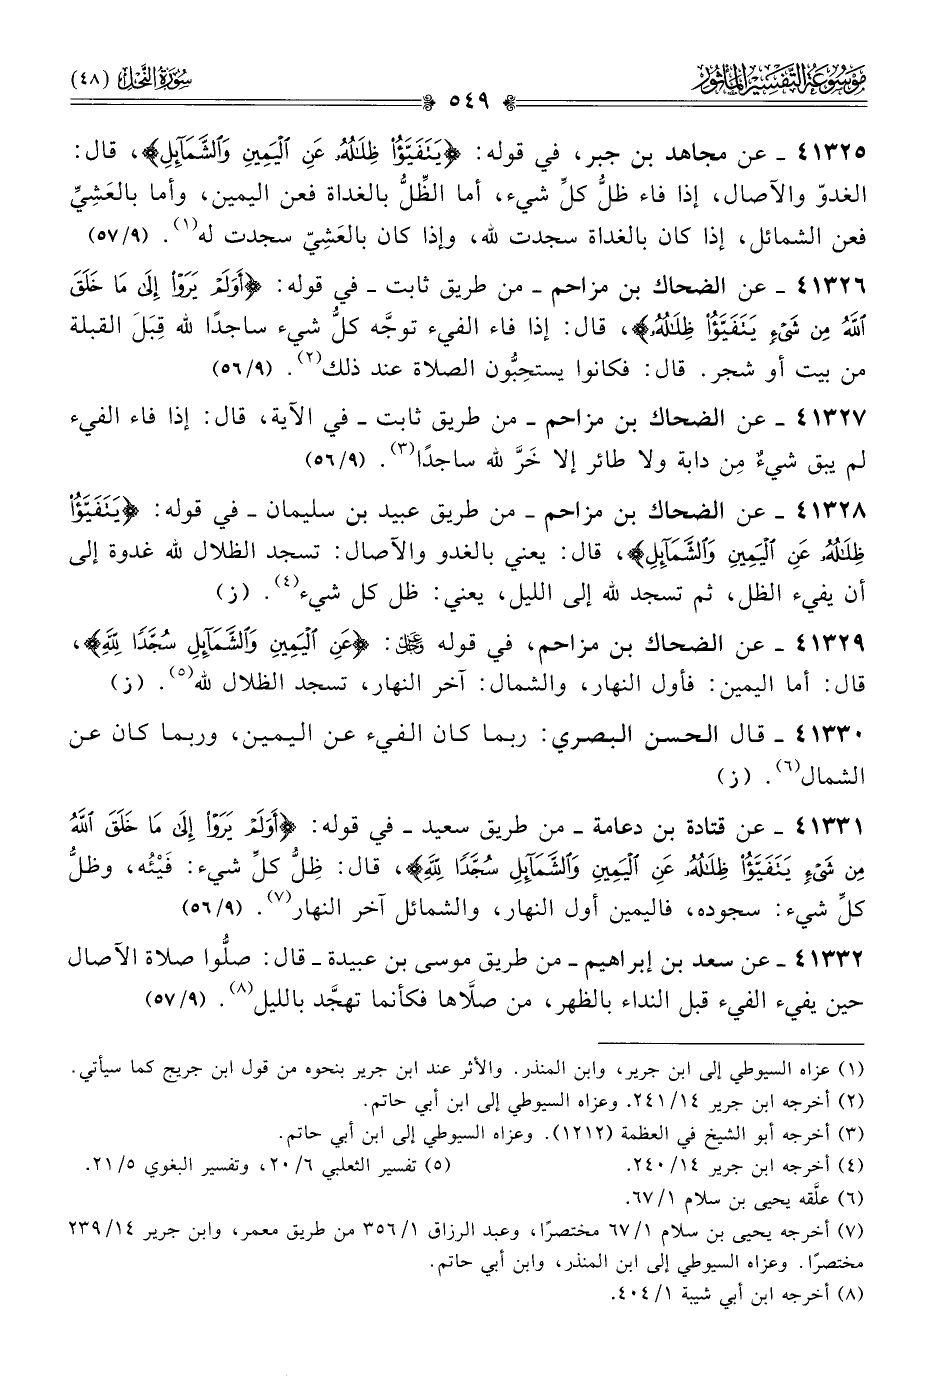 مَوْسُوعَةُ التَّفْسِيرِ المَأْثُورِ
سُورَةُ النَّحْل (٤٨)
٥٤٩
٤١٣٢٥ ـ عن مجاهد بن جبر، في قوله: ﴿يَتَفَيَّؤُا ظِلَالُهُ عَنِ الْيَمِينِ وَالشَّمَآئِلِ﴾، قال:
الغدوّ والآصال، إذا فاء ظلُّ كلِّ شيء، أما الظِّلُّ بالغداة فعن اليمين، وأما بالعَشِيِّ
فعن الشمائل، إذا كان بالغداة سجدت لله، وإذا كان بالعَشِيّ سجدت له(١). (٥٧/٩)
٤١٣٢٦ ـ عن الضحاك بن مزاحم ـ من طريق ثابت ـ في قوله: ﴿أَوَلَمْ يَرَوْا إِلَى مَا خَلَقَ
اللَّهُ مِن شَيْءٍ يَتَفَيَّؤُا ظِلَالُهُ﴾، قال: إذا فاء الفيء توجَّه كلُّ شيء ساجدًا لله قِبَلَ القبلة
من بيت أو شجر. قال: فكانوا يستحِبُّون الصلاة عند ذلك(٢). (٥٦/٩)
٤١٣٢٧ ـ عن الضحاك بن مزاحم ـ من طريق ثابت ـ في الآية، قال: إذا فاء الفيء
لم يبق شيءٌ مِن دابة ولا طائر إلا خَرَّ لله ساجدًا(٣). (٥٦/٩)
٤١٣٢٨ ـ عن الضحاك بن مزاحم ـ من طريق عبيد بن سليمان ـ في قوله: ﴿يَتَفَيَّؤُا
ظِلَالُهُ عَنِ الْيَمِينِ وَالشَّمَآئِلِ﴾، قال: يعني بالغدو والآصال: تسجد الظلال لله غدوة إلى
أن يفيء الظل، ثم تسجد لله إلى الليل، يعني: ظل كل شيء(٤). (ز)
٤١٣٢٩ ـ عن الضحاك بن مزاحم، في قوله ﷿: ﴿عَنِ الْيَمِينِ وَالشَّمَآئِلِ سُجَّدًا لِّلَّهِ﴾،
قال: أما اليمين: فأول النهار، والشمال: آخر النهار، تسجد الظلال لله(٥). (ز)
٤١٣٣٠ ـ قال الحسن البصري: ربما كان الفيء عن اليمين، وربما كان عن
الشمال(٦). (ز)
٤١٣٣١ ـ عن قتادة بن دعامة ـ من طريق سعيد ـ في قوله: ﴿أَوَلَمْ يَرَوْا إِلَى مَا خَلَقَ اللَّهُ
مِن شَيْءٍ يَتَفَيَّؤُا ظِلَالُهُ عَنِ الْيَمِينِ وَالشَّمَآئِلِ سُجَّدًا لِّلَّهِ﴾، قال: ظِلُّ كلِّ شيء: فَيْئُه، وظلُّ
كلِّ شيء: سجوده، فاليمين أول النهار، والشمائل آخر النهار(٧). (٥٦/٩)
٤١٣٣٢ ـ عن سعد بن إبراهيم ـ من طريق موسى بن عبيدة ـ قال: صلُّوا صلاة الآصال
حين يفيء الفيء قبل النداء بالظهر، من صلَّاها فكأنما تهجَّد بالليل(٨). (٥٧/٩)
(١) عزاه السيوطي إلى ابن جرير، وابن المنذر. والأثر عند ابن جرير بنحوه من قول ابن جريج كما سيأتي.
(٢) أخرجه ابن جرير ٢٤١/١٤. وعزاه السيوطي إلى ابن أبي حاتم.
(٣) أخرجه أبو الشيخ في العظمة (١٢١٢). وعزاه السيوطي إلى ابن أبي حاتم.
(٤) أخرجه ابن جرير ٢٤٠/١٤. (٥) تفسير الثعلبي ٢٠/٦، وتفسير البغوي ٢١/٥.
(٦) علَّقه يحيى بن سلام ٦٧/١.
(٧) أخرجه يحيى بن سلام ٦٧/١ مختصرًا، وعبد الرزاق ٣٥٦/١ من طريق معمر، وابن جرير ٢٣٩/١٤
مختصرًا. وعزاه السيوطي إلى ابن المنذر، وابن أبي حاتم.
(٨) أخرجه ابن أبي شيبة ٤٠٤/١.